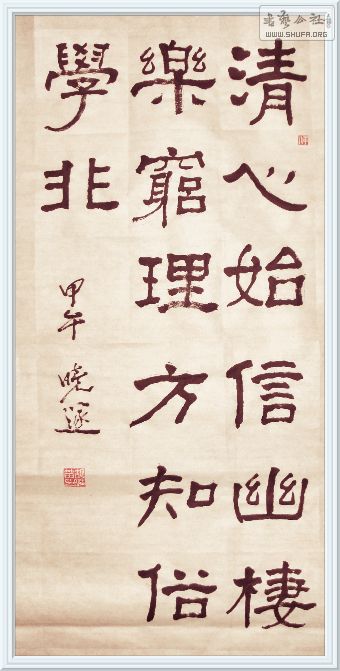 清心始信幽棲
樂窮理方知俗
學非
甲午
曉
書藝公社
WWW.SHUFA.ORG